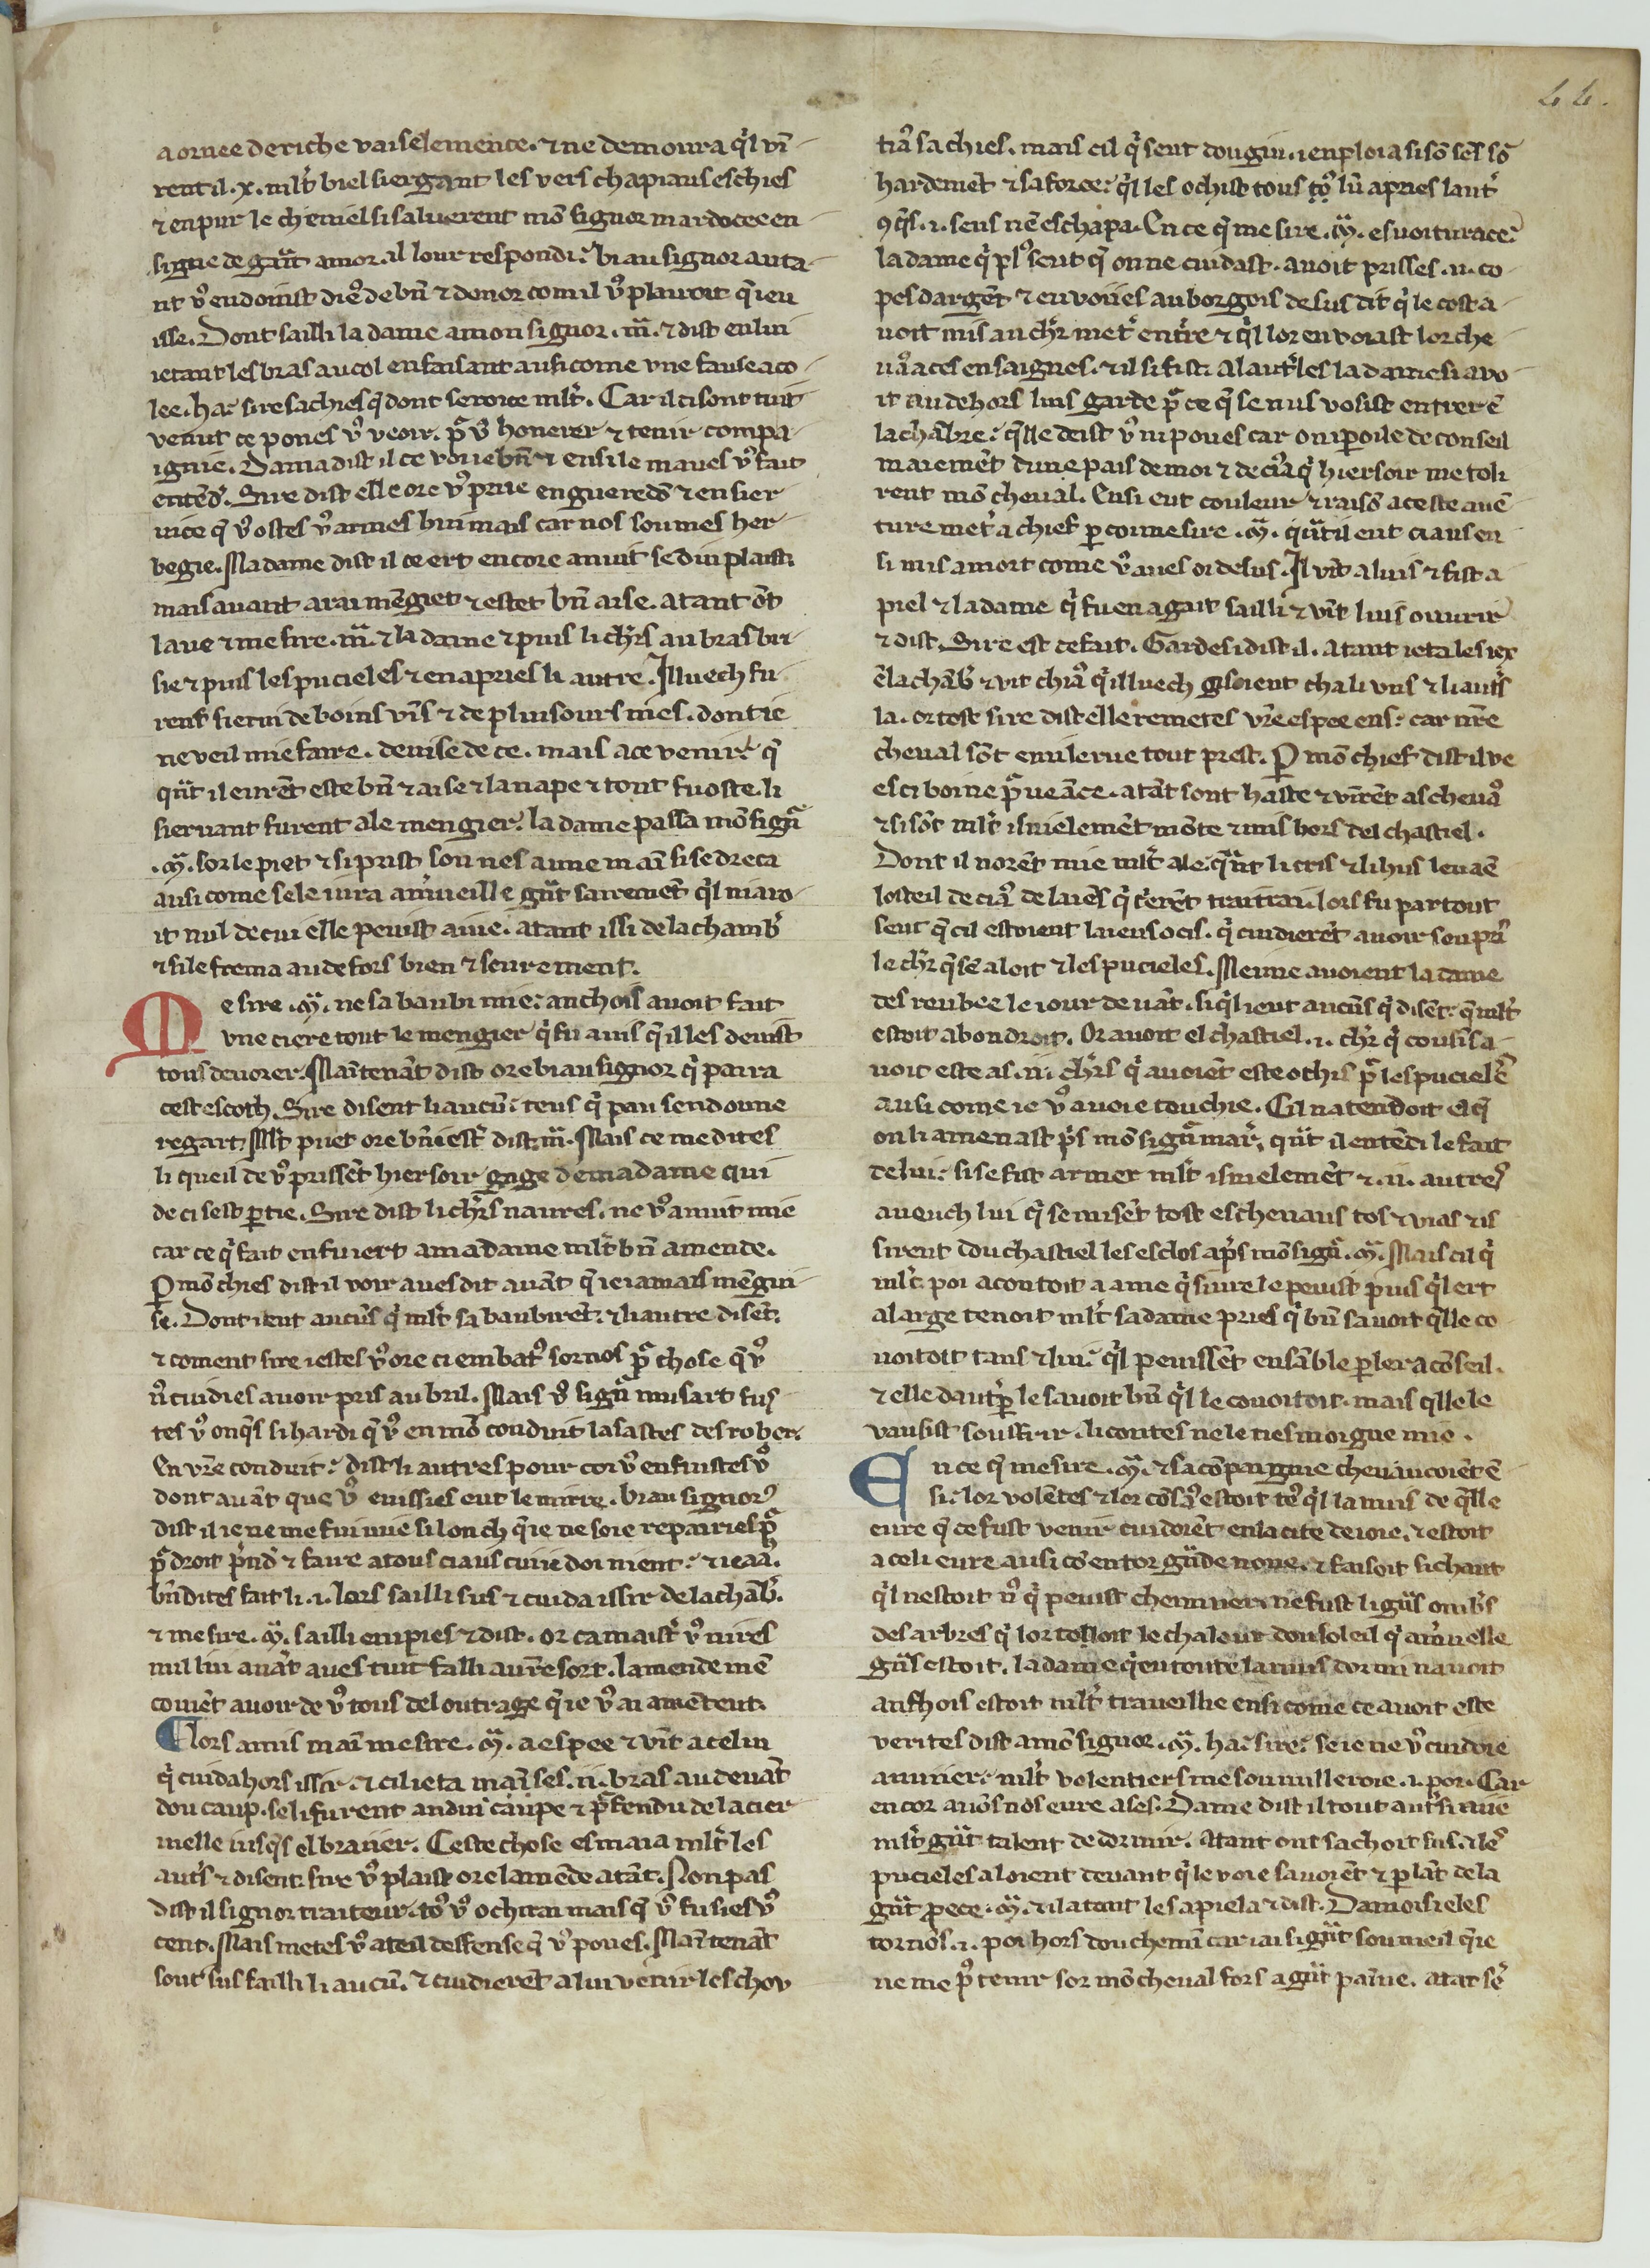 44.
aornee de riche vaiselemence. ⁊ ne demoura q̉l vī
rent il .x. ml̃t biel siergant les vers chapiaus es chies
⁊ en pur le cheniel si saluerent mō signor mardocee en
signe de gr̃t amor. il lour respondi. biau signor auta
nt v̾ en doinst die᷒ de bn̄ ⁊ donor com il v̾ plairoit q̃ ieu
isse. Dont sailli la dame a mon signor .m̃. ⁊ dist en lui
ietant les bras au col en faisant ausi come vne fause aco
lee. ha. sire sachies q̃ dont seroie ml̃t. Car il ci sont tuit
venut ce poues v̾ veoir. p̃ v̾ honerer ⁊ tenir compa
ignie. Dama dist il ce voi ie bn̄ ⁊ ensi le maues v̾ fait
entēd̾. Sire dist elle ore v̾ prie en gueredō ⁊ en sier
uice q̃ v̾ ostes v̾ armes huimais car nos soumes her
begie. Madame dist il ce ert encore anuit se diu plaist.
mais auant arai mēgiet ⁊ estet bn̄ aise. atant ōt
laue ⁊ mesire .m̃. ⁊ la dame ⁊ puis li ch̓rs au bras bri
sie ⁊ puis les pucieles ⁊ en apries li autre. Illuech fu
rent sierui de boins vīs ⁊ de pluisours mes. dont ie
ne veil mie faire. deuise de ce. mais a ce venir. q̃
q̃t il eurēt este bn̄ ⁊ aise ⁊ la nape ⁊ tout fu oste. li
siervant furent ale mengier. la dame passa mō sign̄
.m̃. sor le piet ⁊ si prist son nes a une mai si se dreca
ausi come se le iura a m̾ueille gr̃t sairemēt q̉l ni auo
it nul de cui elle peuist aiue. atant issi de la chamb̾
⁊ si le frema au defors bien ⁊ seurement.
Mesire .m̃. ne sabaubi mie. anchois auoit fait
vne ciere tout le mengier q̉ fu auis q̃ il les deuist
tous deuorer. Maītenāt dist ore biau signor q̉ paira
cest escoth. Sire disent li aucū. teus q̉ pau sen doune
regart. Ml̃t puet ore bn̄ iestr̾ dist .m̃. Mais ce me dites
li queil de v̾ prissēt hiersoir gage de madame qui
de ci sest ꝑtie. Sire dist li ch̓rs naures. ne v̾ anuit mie
car ce q̉ fait en fu iert a madame ml̃t bn̄ amende.
Ꝑ mō chief dist il voir aues dit auāt q̃ ie iamais mēgui
se. Dont ieut aucūs q̉ ml̃t sabaubirēt. ⁊ li autre disēt.
⁊ coment sire iestes v̾ ore ci embat᷒ sor nos p̃ chose q̃ v̾
n̄ cuidies auoir pris au bril. Mais v̾ sign̄ musart fus
tes v̾ onq̃s si hardi q̃ v̾ en mō conduit lasastes desrober.
En vr̄e conduit. dist li autres pour coi v̾ enfuistes v̾
dont auāt que v̾ euissies eut le mirre. Biau signor᷒
dist il ie ne me fui mie si lonch q̃ ie ne soie repairies p̃
p̃ droit p̾nd̾ ⁊ faire a tous ciaus cui ie doi nient. ⁊ ieaā.
bn̄ dites fait li .i. lors sailli sus ⁊ cuida issir de la chāb̾.
⁊ mesire .m̃. sailli en pies ⁊ dist. or ca maistr̾ v̾ nires
nul liu auāt aues tuit falli a vr̄e sort. lamende mē
couiēt auoir de v̾ tous del outrage q̃ ie v̾ ai amēteut.
Lors a mis mai mesire .m̃. a espee ⁊ vīt a celui
q̉ cuida hors issir. ⁊ cil ieta mai ses .ii. bras au deuāt
dou caup. se li furent andui caupe ⁊ p̃fendu de la cier
uielle iusq̃s el braiier. Ceste chose esmaia ml̃t les
aut̾s ⁊ disent. sire v̾ plaise ore lamēde atāt. Non pas
dist il signor traiteur. to᷒ v̾ ochirai mais q̃ v̾ fusies v̾
cent. Mais metes v̾ a teil deffense q̃ v̾ poues. Maītenāt
sont sus failli li aucū. ⁊ cuidierēt a lui venir les chou
tia᷒ sachies. mais cil q̉ seut dou giu. i enploia si sō sēs sō
hardemēt ⁊ sa force. q̉l les ochist tous to᷒ lū apries laut̾
ꝯq̃s .i. seus nē eschapa. En ce q̃ mesire .m̃. esuoiturace.
la dame q̉ pl᷒ seut q̃ on ne cuidast. auoit prisses .ii. co
pes dargēt ⁊ enuoiies au borgois desus dit q̉ le cost a
uoit mis au ch̓r met̾ ent̾re ⁊ q̉l lor enuoiast lor che
ua᷒ a ces ensaignes. ⁊ il si fist. al autr̾ les la dame si auo
it au dehors luis garde p̃ ce q̃ se nus vosist entrer ē
la chābre. q̃lle deist v̾ ni poues car on i ꝑoile de conseil
maiemēt dune pais de moi ⁊ de cia᷒ q̉ hiersoir me toli
rent mō cheual. Ensi eut couleur ⁊ raisō a ceste auē
ture met̾ a chief ꝑ coi mesire .m̃. q̃t il eut ciaus en
si mis a mort come v̾ aues oi desus. Il vīt a luis ⁊ fist a
piel ⁊ la dame q̉ fu en agait sailli ⁊ vīt luis ouurir
⁊ dist. Sire est ce fait. Gardes i dist il. Atant ieta les iex
ē la chāb̾ ⁊ vit chia᷒ q̉ illuech gisoient cha li vns ⁊ li aut̾s
la. or tost sire dist elle remetes vr̄e espee ens. car nr̄e
cheual sōt enmi le rue tout prest. Ꝑ mō chief dist il ve
es ci boine p̃ueāce. atāt sont haste ⁊ vīrēt as cheua᷒
⁊ si sōt ml̃t isnielemēt mōte ⁊ mis hors del chastiel.
Dont il norēt mie ml̃t ale. q̃nt li cris ⁊ li hus leua ē
losteil de cia᷒ de laiēs q̉ c̓erēt trai trai. lors fu partout
seut q̃ cil estoient laiens ocis. q̉ cuidierēt auoir soupri
le ch̓r q̃ sē aloit ⁊ les pucieles. Meime auoient la dame
desreubee le iour deuāt. si q̉l i eut aucūs q̉ disēt. q̃ ml̃t
estoit a bon droit. Or auoit el chastiel .i. ch̓r q̉ cousīs a
uoit este as .iii. ch̓rs q̉ auoiēt este ochis p̃ les pucieles
ausi come ie v̾ auoie touchie. Cil natendoit el q̃
on li amenast p̾s mō sign̄ mar̾. q̃t il entēdi le fait
de lui. si se fist armer ml̃t isnielemēt ⁊ .ii. autres
aueuch lui q̉ se misēt tost es cheuaus tos ⁊ vias ⁊ is
sirent dou chastiel les esclos ap̾s mō sign̄ .m̃. Mais cil q̉
ml̃t poi acontoit a ame q̉ siure le peuist puis q̉l ert
al large tenoit ml̃t sa dame pries q̉ bn̄ sauoit q̃lle co
uoitoit tans ⁊ liu. q̉l peuissēt ensāble ꝑler a cōseil.
⁊ elle daut̾ ꝑ le sauoit bn̄ q̉l le couoitoit. mais q̃lle le
vausist souffrir. li contes ne le tiesmoigne mie.
En ce q̃ mesire .m̃. ⁊ sa cōpaignie cheuaucoiēt ē
si. lor volētes ⁊ lor cōsa᷒ estoit te᷒ q̉l la nuis de q̃lle
eure q̃ ce fust venir cuidoiēt en la cite de ioie. ⁊ estoit
a celi eure ausi cō entor gr̃de none. ⁊ faisoit si chaut
q̉l nestoit n̾ q̉ peuist cheminer. ne fust li gr̃s omb̾s
des arbres q̃ lor tolloit le chalour dou soleil q̉ a m̾uelle
gr̃s estoit. la dame q̉ en toute la nuis dormi nauoit
anchois estoit ml̃t traueilhe ensi come ce auoit este
verites dist a mō signor .m̃. ha. sire. se ie ne v̾ cuidoie
anuiier. ml̃t volentiers me soumilleroie .i. poi. Car
encor auōs nos eure ases. Dame dist il tout aut̾si aiie
ml̃t gr̃t talent de dormir. Atant ont sachoit sus. ⁊ les
pucieles aloient deuant q̉ le voie sauoiēt ⁊ ꝑlāt de la
gr̃t ꝓece .m̃. ⁊ il atant les apiela ⁊ dist. Damoisieles
tornōs .i. poi hors dou chemī car iai si gr̃t soumeil q̃ ie
ne me p᷒ tenir sor mō cheual fors a gr̃t paīne. atāt sē